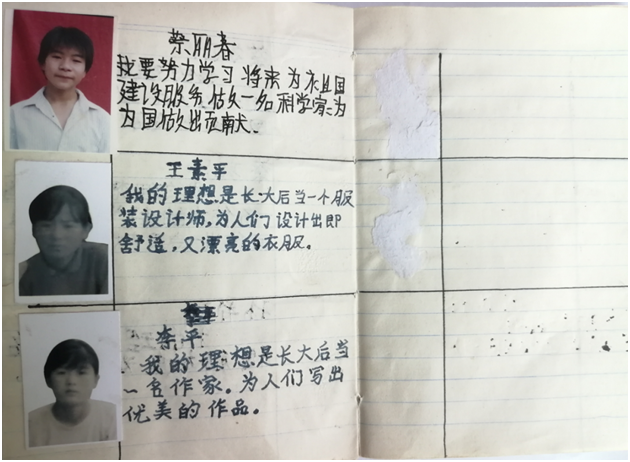 蔡丽春
我要努力学习 将来 为祖国
建设服务 做一名 科学家 为
国做出贡献。
王素平
我的理想是长大后当一个服
装设计师，为人们设计出即
舒适，又漂亮的衣服。
李平
我的理想是长大后当
一名作家。为人们写出
优美的作品。